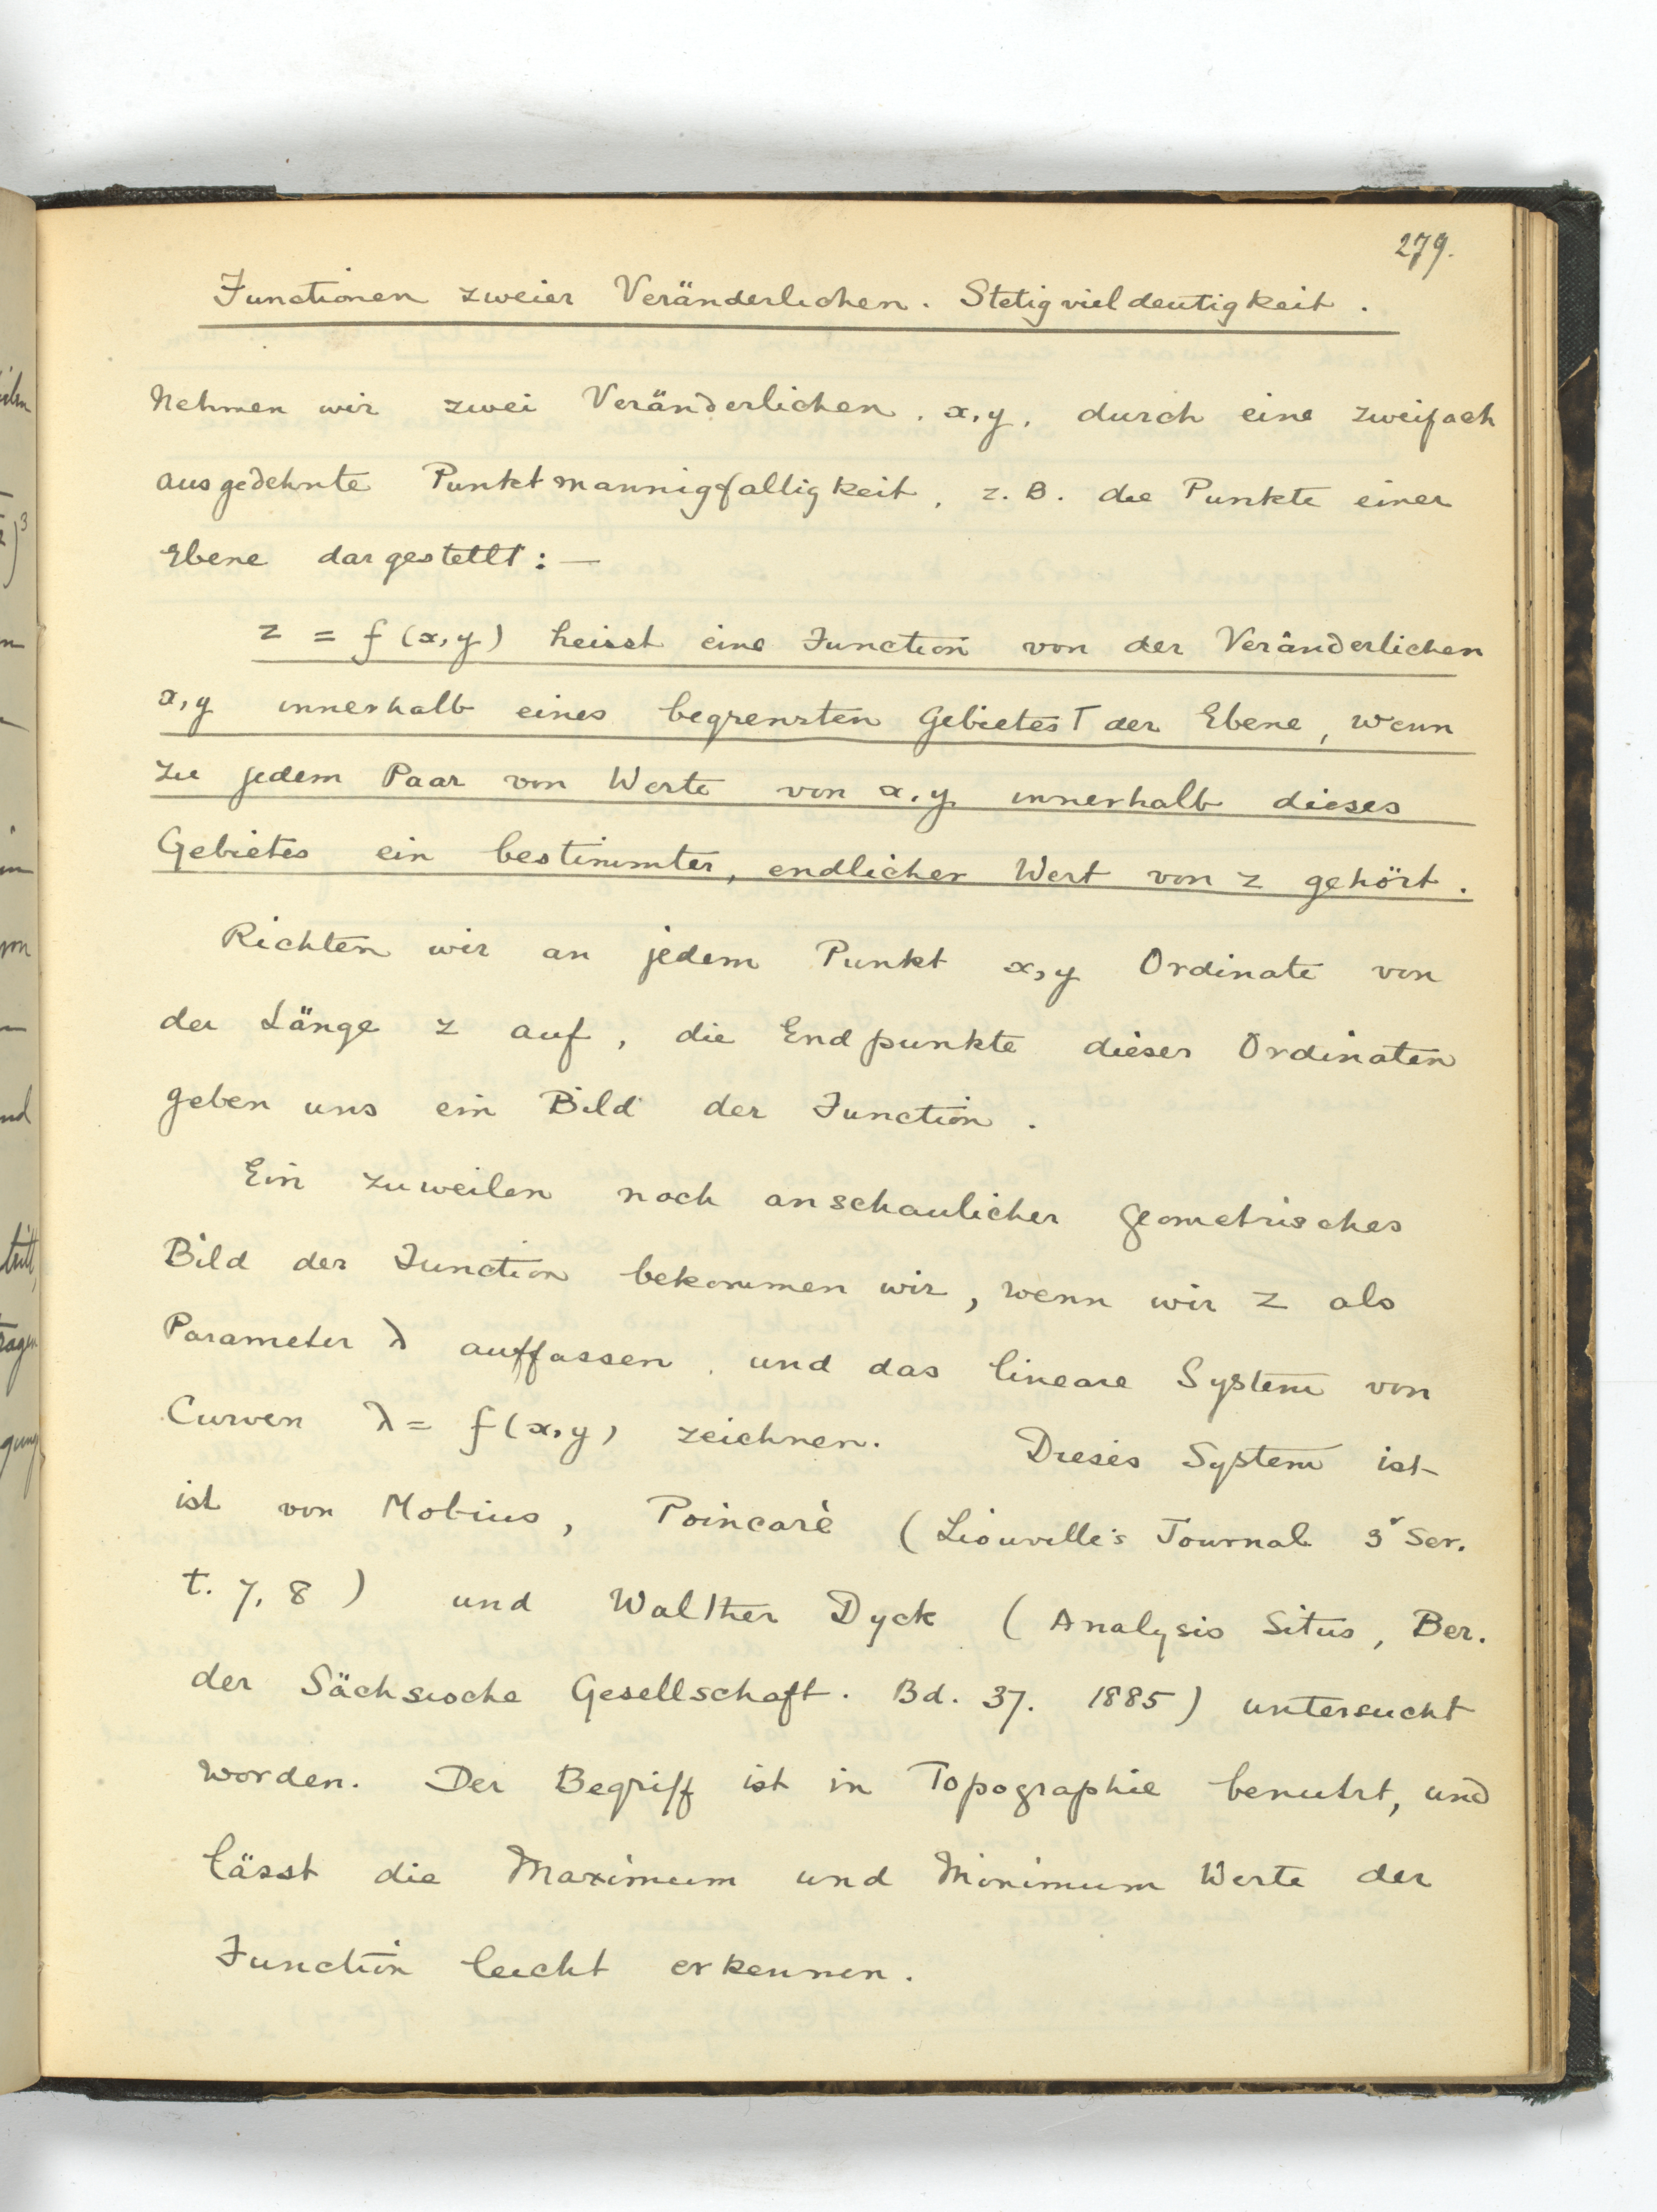 279.
Functionen zweier Veränderlichen. Stetigvieldeutigkeit.
Nehmen wir zwei Veränderlichen, x, y, durch eine zweifach
ausgedehnte Punktmannigfaltigkeit, z. B. die Punkte einer
Ebene dargestellt: —
z = f (x, y) heisst eine Function von der Veränderlichen
x, y innerhalb eines begrenzten Gebietes T der Ebene, wenn
zu jedem Paar von Werte von x, y innerhalb dieses
Gebietes ein bestimmter, endlicher Wert von z gehört.
Richten wir an jedem Punkt x, y Ordinate von
der Länge z auf, die Endpunkte dieser Ordinaten
geben uns ein Bild der Function.
Ein zuweilen noch anschaulicher geometrisches
Bild der Function bekommen wir, wenn wir z als
Parameter λ auffassen, und das lineare System von
Curven λ = f (x, y) zeichnen. Dieses System ist
ist von Mobius, Poincarè (Liouville's Journal 3r Ser.
t. 7, 8) und Walther Dyck (Analysis Situs, Ber.
der Sächsische Gesellschaft. Bd. 37. 1885) untersucht
worden. Der Begriff ist in Topographie benutzt, und
lässt die Maximum und Minimum Werte der
Function leicht erkennen.